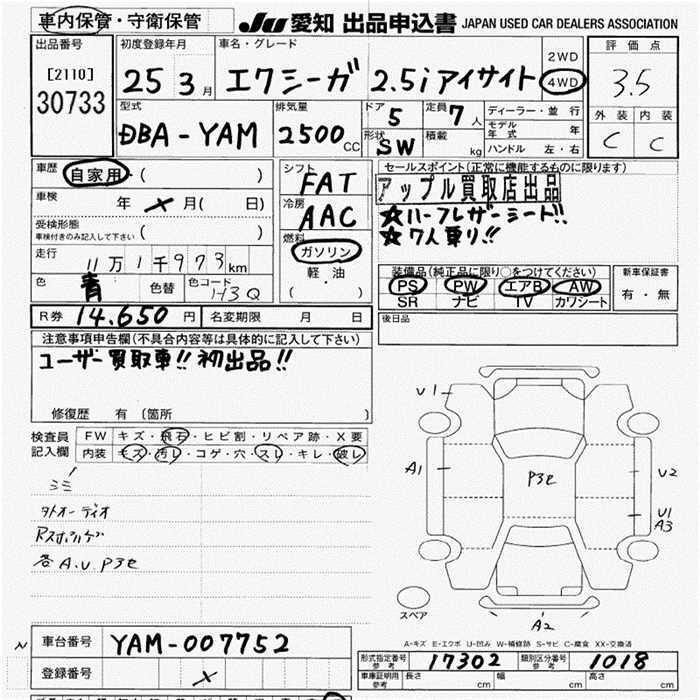 車内保管・守衛保管
JU 愛知 出品申込書 JAPAN USED CAR DEALERS ASSOCIATION
出品番号
[2110]
30733
初度登録年月
25 3月
車名・グレード
エクシーガ 2.5iアイサイト
2WD
4WD
評価点
3.5
外装 内装
C C
型式
DBA-YAM
排気量
2500CC
ドア 5
形状 SW
定員 7人
積載 kg
ディーラー・並行
モデル年式 年
ハンドル 左・右
車歴 自家用・( )
車検 年 × 月( 日)
受検形態
車検付きのみ記入して下さい ( )
走行 11万1千973km
色 青 色替 色コード H3Q
シフト
FAT
冷房
AAC
燃料
ガソリン
軽・油
( )
セールスポイント(正常に機能するものに限ります)
アップル買取店出品
☆ハーフレザーシート!!
☆7人乗り!!
装備品(純正品に限り○をつけてください)
PS PW エアB AW
SR ナビ TV カワシート
新車保証書
有・無
R券 14.650円 名変期限 月 日
後日品
注意事項申告欄(不具合内容等は具体的に記入して下さい)
ユーザー買取車!! 初出品!!
修復歴 有〔箇所 〕
検査員
記入欄
FW キズ・飛石・ヒビ割・リペア跡・X要
内装 キズ・汚レ・コゲ・穴・スレ・キレ・破レ
外オーディオ
各A.U.P3セ
U1
A1
P3セ
U2
U1
A3
A2
スペア
A-キズ E-エクボ U-凹み W-補修跡 S-サビ C-腐食 XX-交換済
車台番号 YAM-007752
登録番号 ×
形式指定番号 参考 17302 類別区分番号 参考 1018
車庫証明用 参考 長さ cm 幅 cm 高さ cm